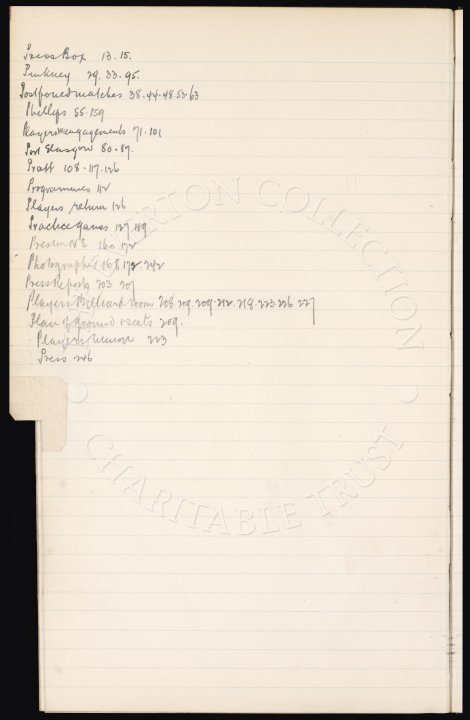 Press Box 13.15.
Pinkney 29.33.95.
Postponed matches 38.44.48.53.63
Phillips 55.159.
Players engagements 71.101
Port Glasgow 80.87.
Pratt 108.117.126
Programmes 112
Players return 126
Practice games 127.189.
Preston N E 160 172
Photographer 168.172.242
Press Reports 203 207
Players Billiard Room 208.209.209.212.218.223.226 227
Plan of ground & seats 209.
Players 223
Press 246
"EVERTON COLLECTION"
CHARITABLE TRUST